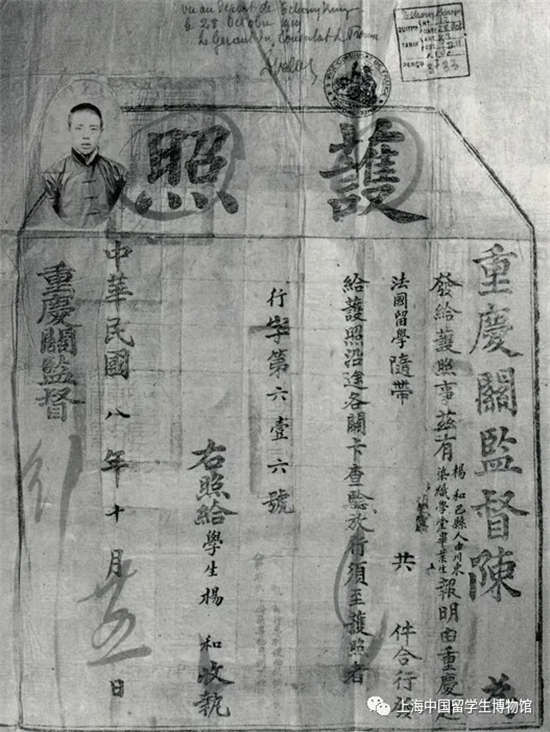 Vu au départ de Tchung King
le 28 Octobre
Le Gérant du Consulat de France
護照
重慶關監督陳 為
發給護照事茲有楊和巴縣人由川東
染織學堂畢業生報明由重慶赴
法國留學隨帶 共 件合行發
給護照沿途各關卡查驗放行須至護照者
行字第六壹六號
右照給學生楊 和收執
中華民國八年十月廿五日
重慶關監督
行
上海中国留学生博物馆